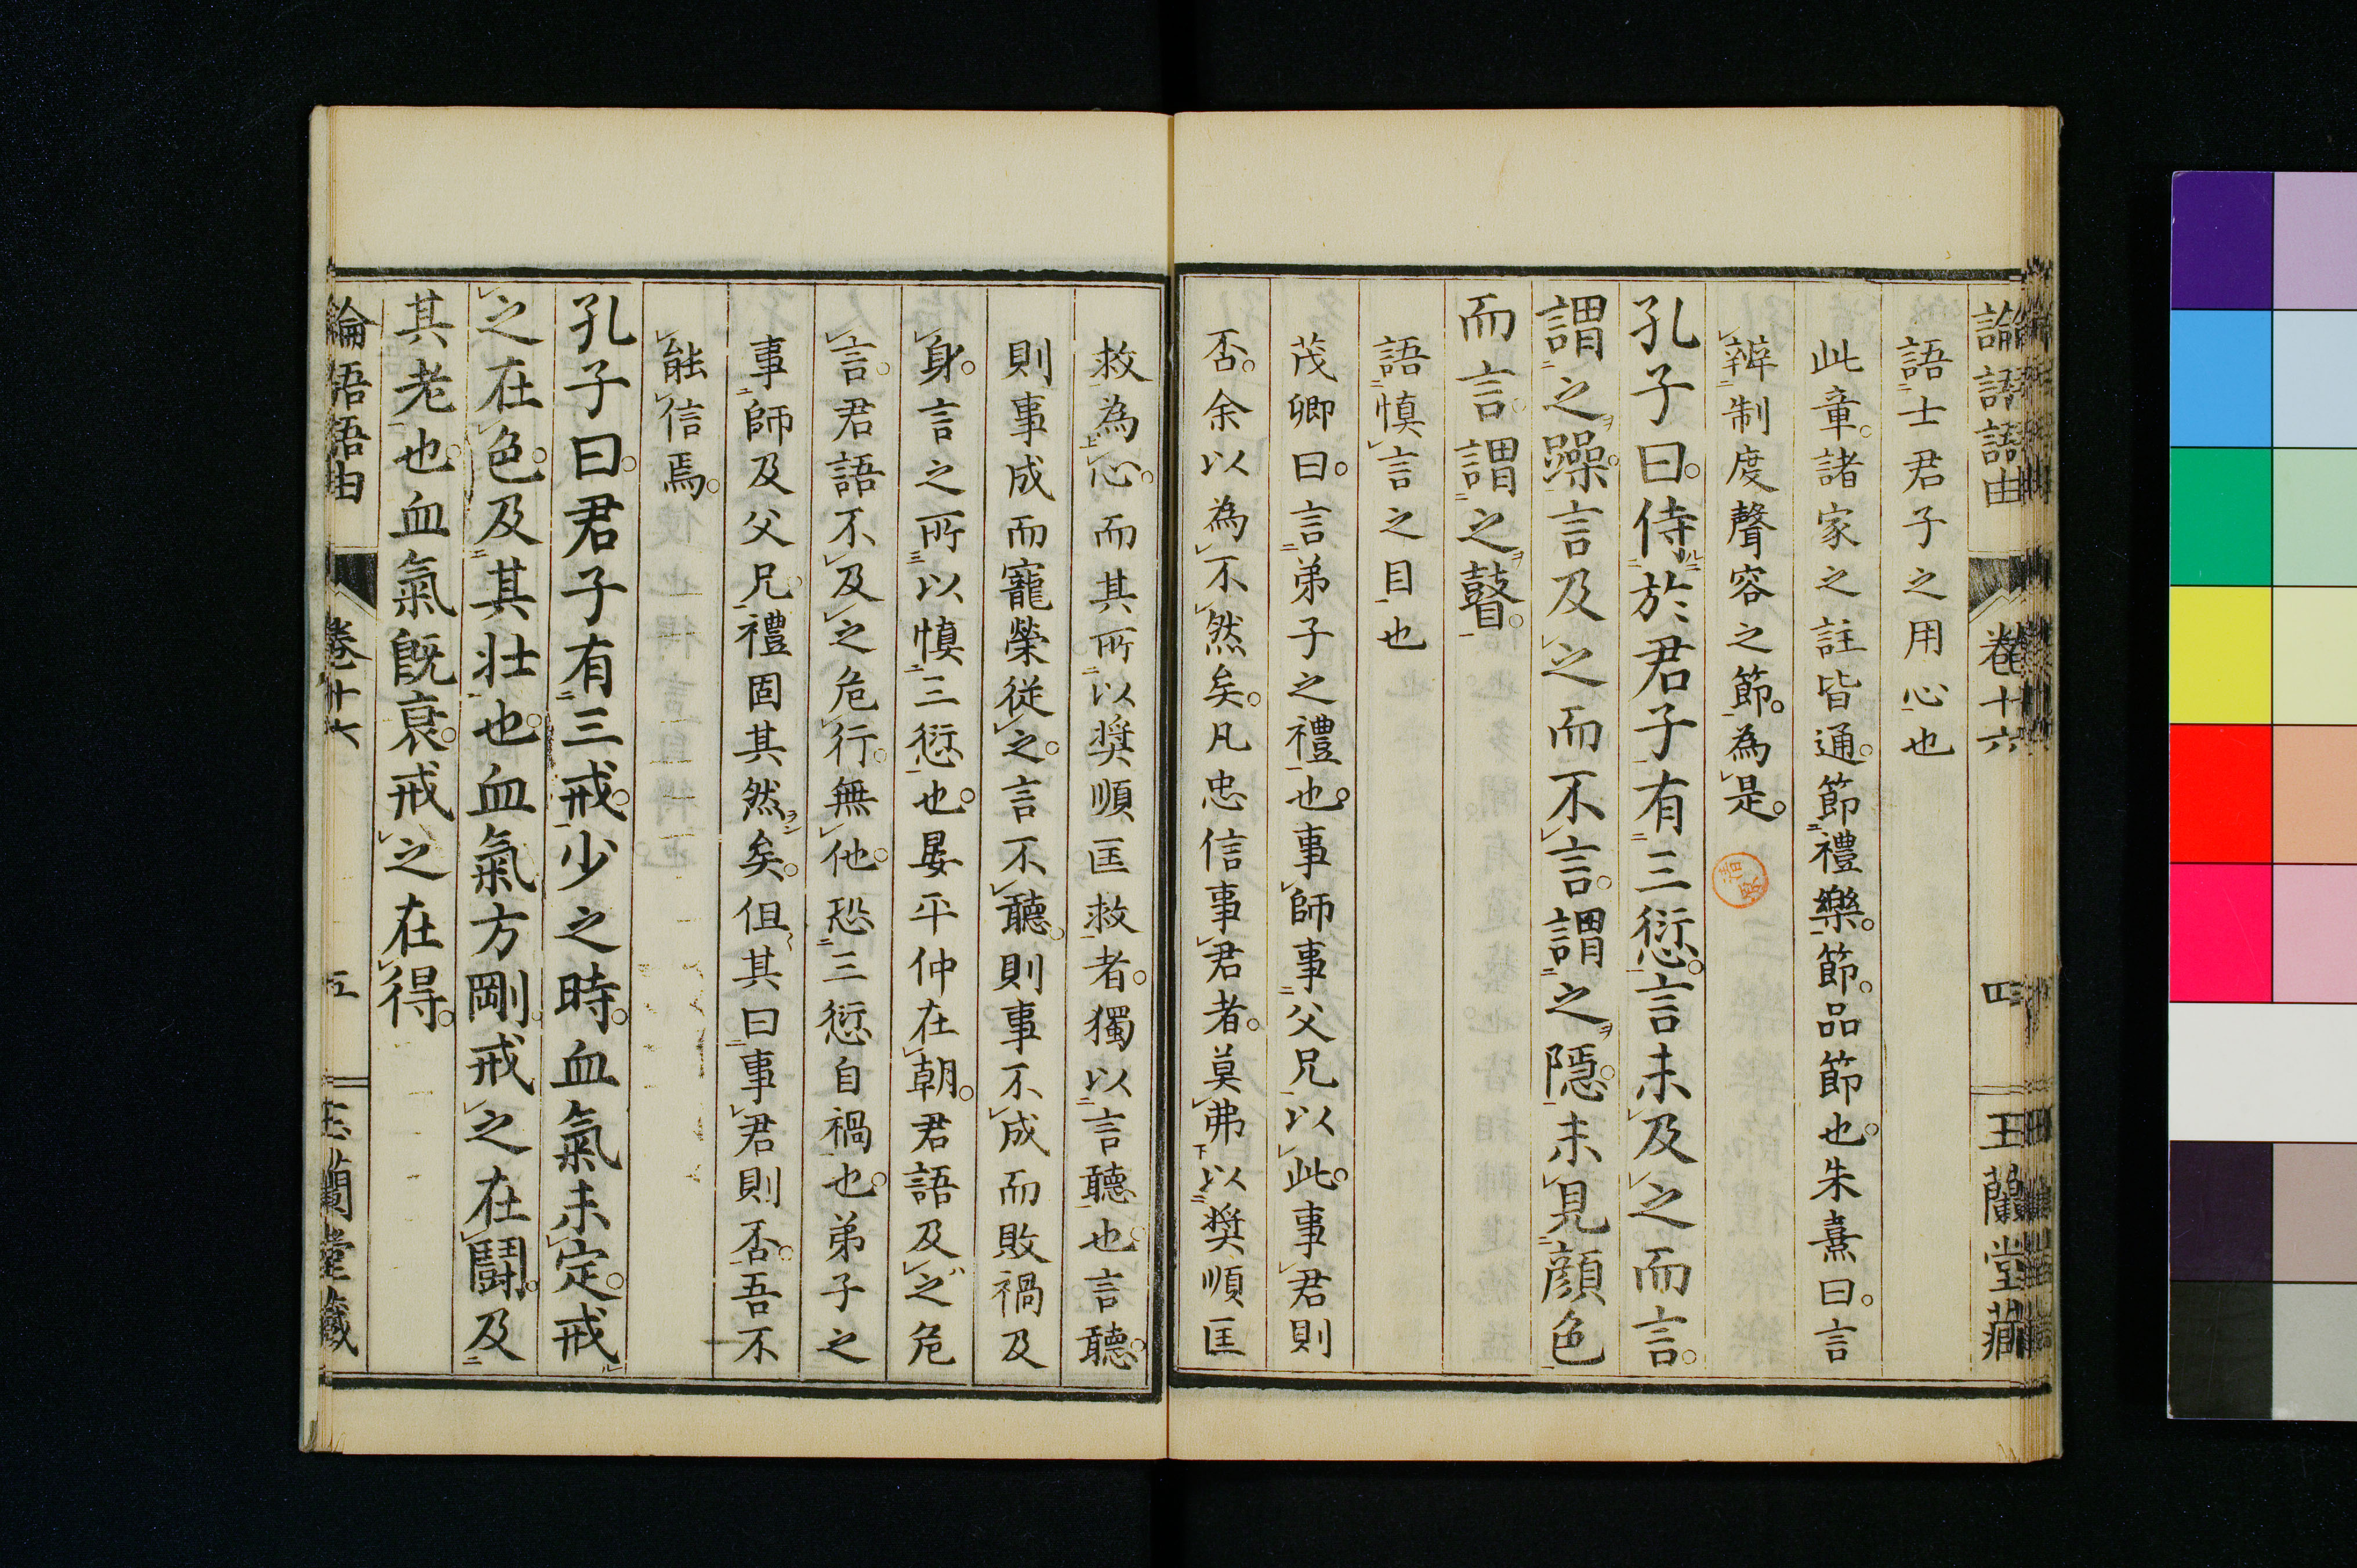 論語語由 卷十六 四 玉蘭堂藏
語士君子之用心也
此章諸家之註皆通節禮樂節品節也朱熹曰言
辨制度聲容之節為是
孔子曰侍於君子有三愆言未及之而言
謂之躁言及之而不言謂之隱未見顔色
而言謂之瞽
語慎言之目也
茂卿曰言弟子之禮也事師事父兄以此事君則
否余以為不然矣凡忠信事君者莫弗以奬順匡
救為心而其所以奬順匡救者獨以言聽也言聽
則事成而寵榮從之言不聽則事不成而敗禍及
身言之所以慎三愆也晏平仲在朝君語及之危
言君語不及之危行無他恐三愆自禍也弟子之
事師及父兄禮固其然矣但其曰事君則否吾不
能信焉
孔子曰君子有三戒少之時血氣未定戒
之在色及其壯也血氣方剛戒之在鬪及
其老也血氣旣衰戒之在得
論語語由 卷十六 五 玉蘭堂藏